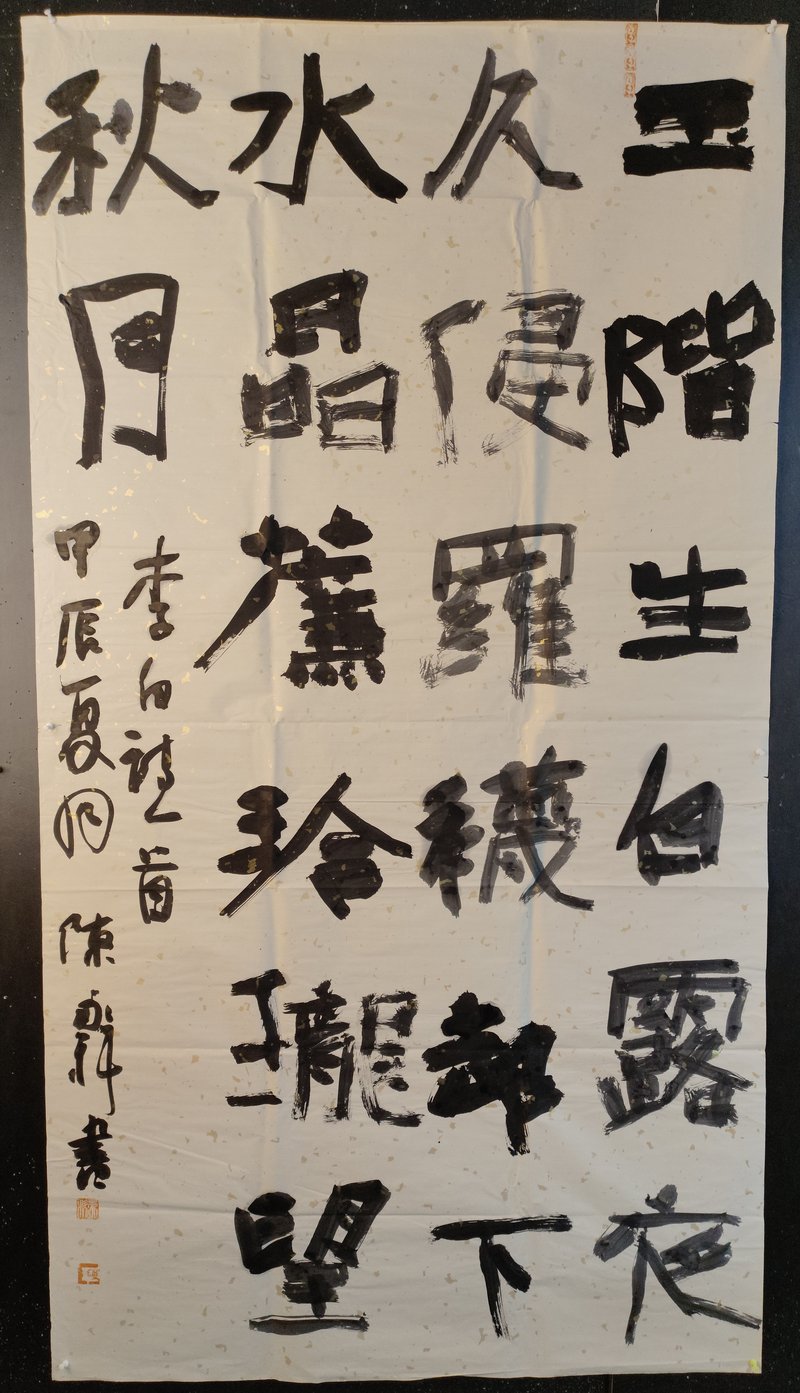 玉階生白露夜
久侵羅襪却下
水晶簾玲瓏望
秋月
李白詩一首
甲辰夏月 陳永祥書